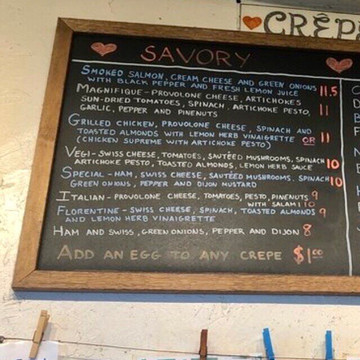 CRÊP
SAVORY
SMOKED SALMON, CREAM CHEESE AND GREEN ONIONS 11.5
WITH BLACK PEPPER AND FRESH LEMON JUICE
MAGNIFIQUE - PROVOLONE CHEESE, ARTICHOKES
SUN-DRIED TOMATOES, SPINACH, ARTICHOKE PESTO, 11
GARLIC, PEPPER AND PINENUTS
GRILLED CHICKEN, PROVOLONE CHEESE, SPINACH AND
TOASTED ALMONDS WITH LEMON HERB VINAIGRETTE OR 11
(CHICKEN SUPREME WITH ARTICHOKE PESTO)
VEGI - SWISS CHEESE, TOMATOES, SAUTÉED MUSHROOMS, SPINACH 10
ARTICHOKE PESTO, TOASTED ALMONDS, LEMON HERB SAUCE
SPECIAL - HAM, SWISS CHEESE, SAUTÉED MUSHROOMS, SPINACH 10
GREEN ONIONS, PEPPER AND DIJON MUSTARD
ITALIAN - PROVOLONE CHEESE, TOMATOES, PESTO, PINENUTS 9
WITH SALAMI 10
FLORENTINE - SWISS CHEESE, SPINACH, TOASTED ALMONDS 9
AND LEMON HERB VINAIGRETTE
HAM AND SWISS, GREEN ONIONS, PEPPER AND DIJON 8
ADD AN EGG TO ANY CREPE $1.00